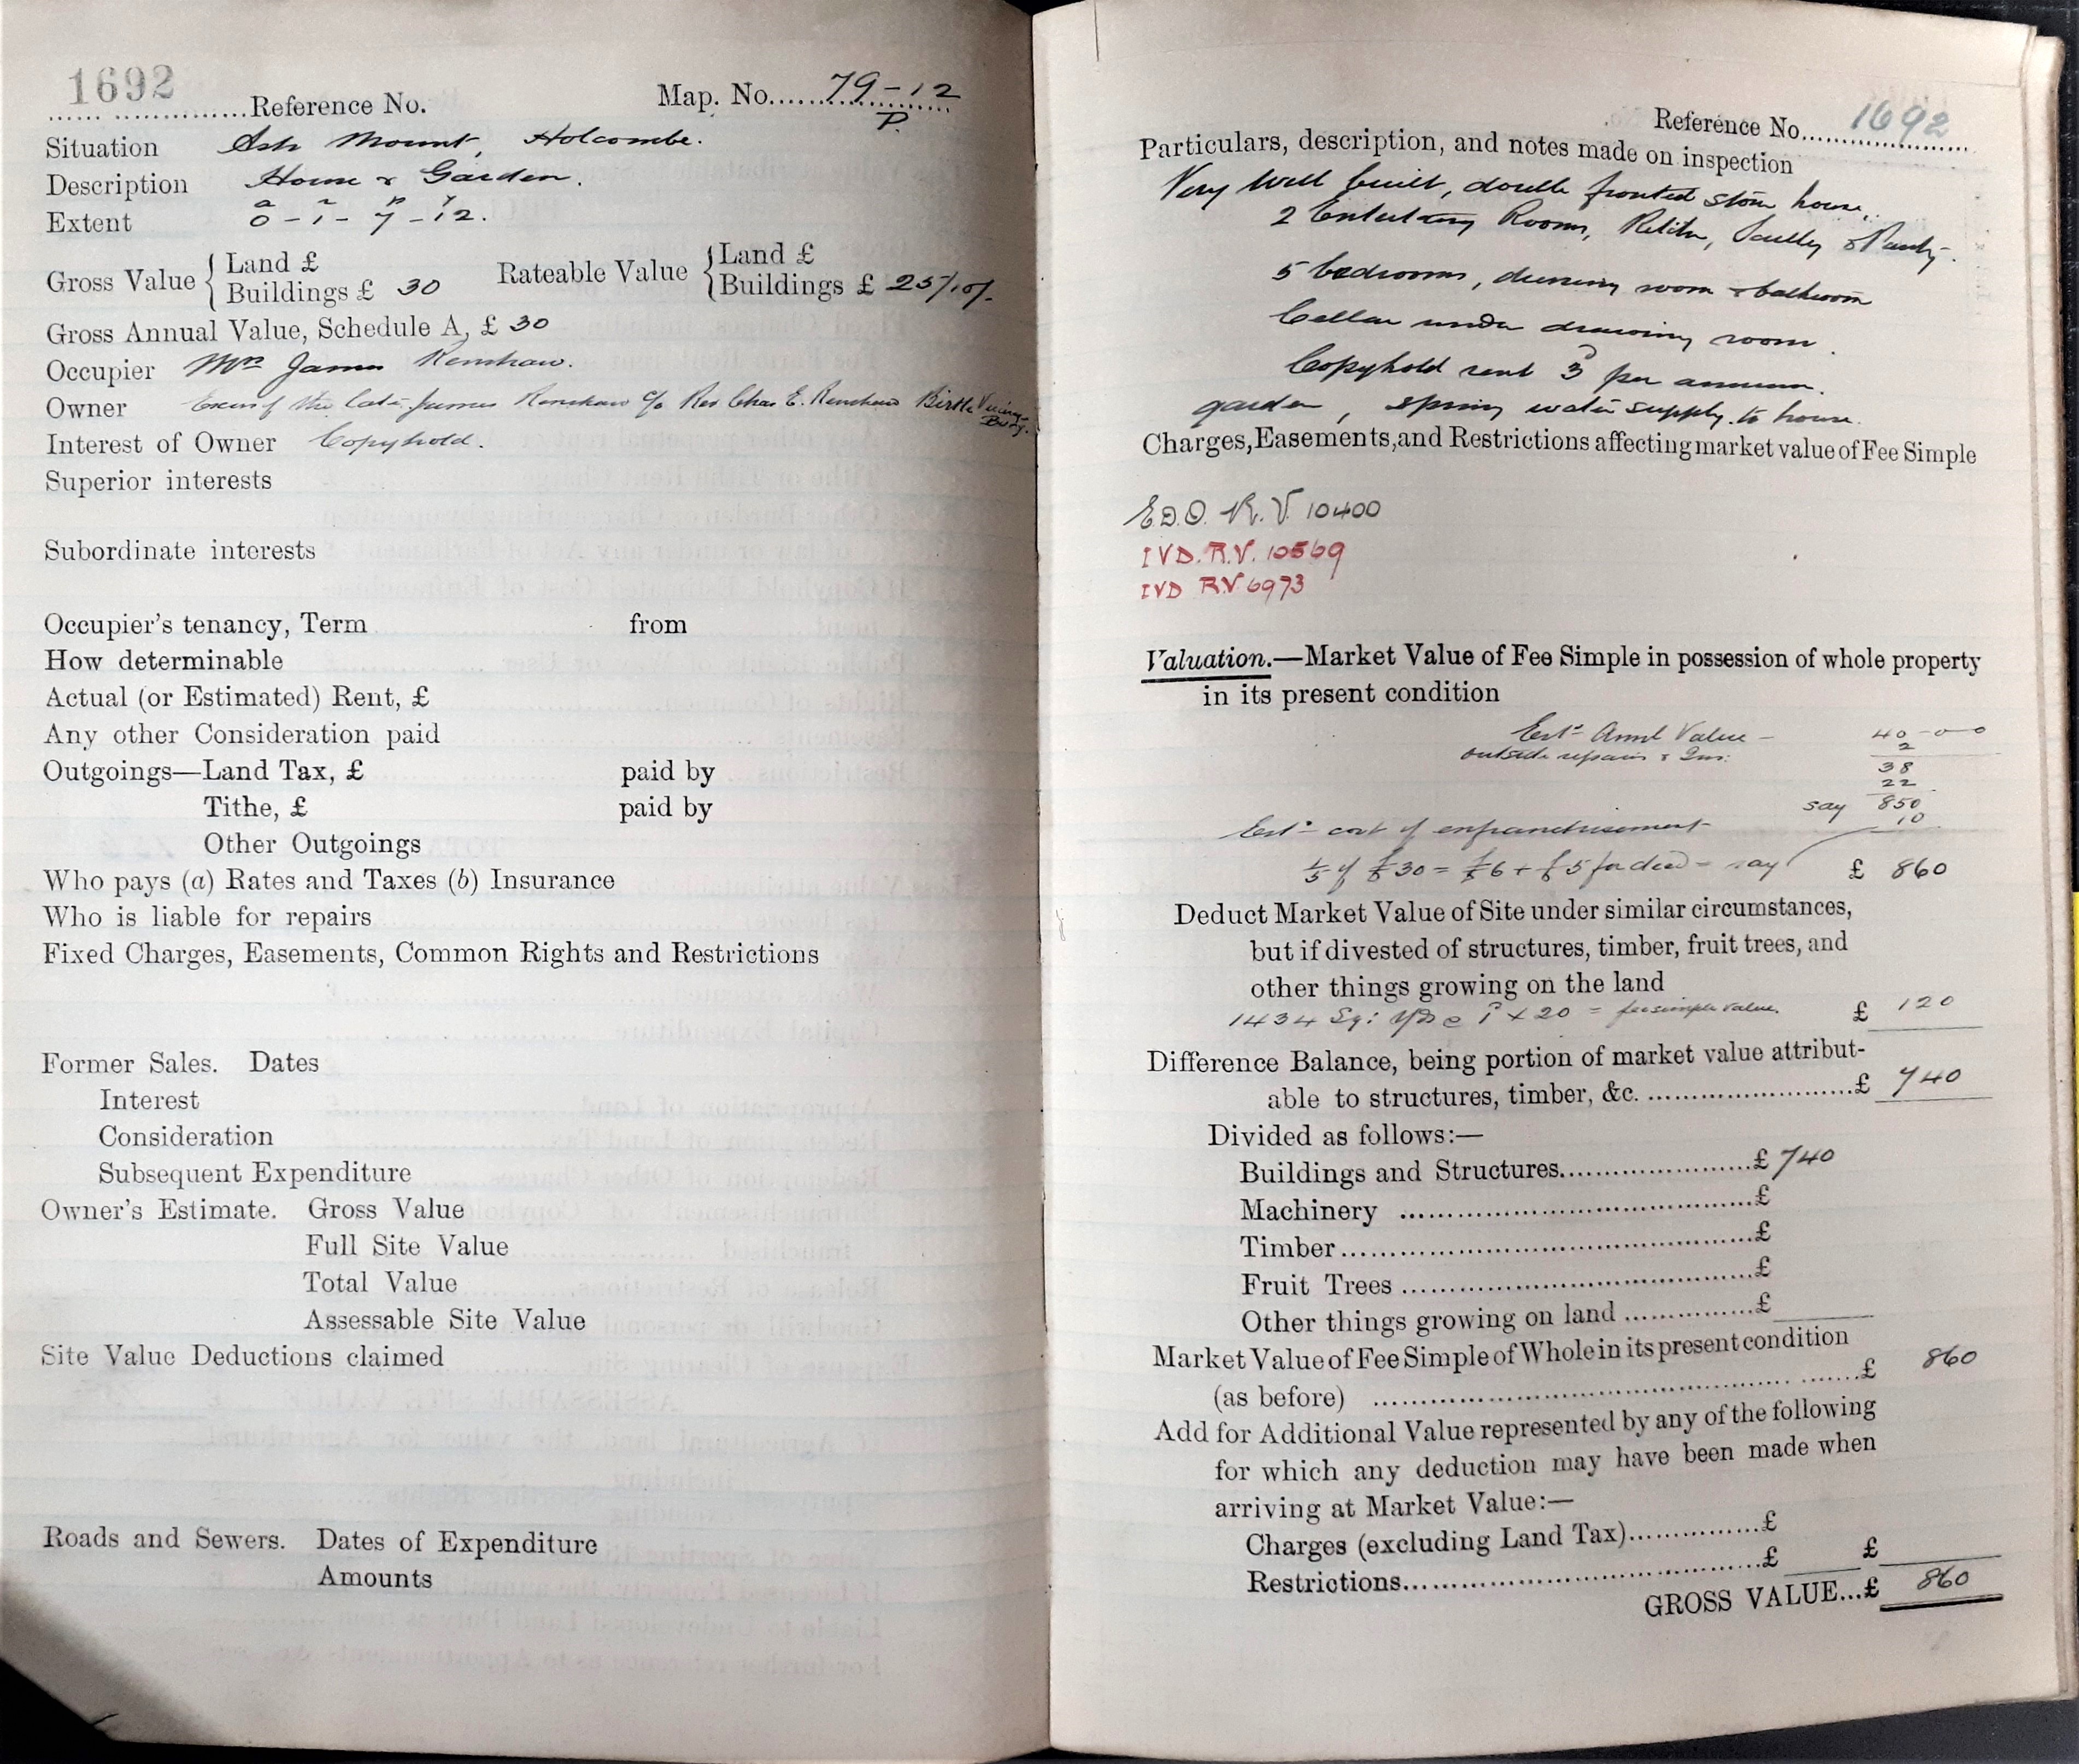 1692 Reference No. Map. No. 79-12
P.
Situation Ash Mount, Holcombe.
Description House & Garden.
a r p y
Extent 0 - 1 - 7 - 12.
Gross Value { Land £
Buildings £ 30
Rateable Value { Land £
Buildings £ 25/10/-
Gross Annual Value, Schedule A, £ 30
Occupier Mrs James Renshaw.
Owner Exors of the late James Renshaw c/o Rev Chas E. Renshaw Birtle Vicarage
Bury.
Interest of Owner Copyhold.
Superior interests
Subordinate interests
Occupier's tenancy, Term from
How determinable
Actual (or Estimated) Rent, £
Any other Consideration paid
Outgoings—Land Tax, £ paid by
Tithe, £ paid by
Other Outgoings
Who pays (a) Rates and Taxes (b) Insurance
Who is liable for repairs
Fixed Charges, Easements, Common Rights and Restrictions
Former Sales. Dates
Interest
Consideration
Subsequent Expenditure
Owner's Estimate. Gross Value
Full Site Value
Total Value
Assessable Site Value
Site Value Deductions claimed
Roads and Sewers. Dates of Expenditure
Amounts
Reference No. 1692
Particulars, description, and notes made on inspection
Very well built, double fronted stone house,
2 Entertaining Rooms, Kitchen, Scullery & Pantry.
5 bedrooms, dressing room & bathroom
Cellar under drawing room.
Copyhold rent 3d per annum.
garden, spring water supply to house.
Charges, Easements, and Restrictions affecting market value of Fee Simple
E.D.O. R.V. 10400
IVD. R.V. 10569
IVD R.V. 6973
Valuation.—Market Value of Fee Simple in possession of whole property
in its present condition
Estd Annl Value - 40-0-0
outside repairs & Ins: 2
38
22
say 850
Estd cost of enfranchisement 10
1/5 of £30 = £6 + £5 for deed = say £ 860
Deduct Market Value of Site under similar circumstances,
but if divested of structures, timber, fruit trees, and
other things growing on the land
1434 Sq: Yds @ 1d x 20 = feesimple value. £ 120
Difference Balance, being portion of market value attribut-
able to structures, timber, &c. £ 740
Divided as follows:—
Buildings and Structures £ 740
Machinery £
Timber £
Fruit Trees £
Other things growing on land £
Market Value of Fee Simple of Whole in its present condition
(as before) £ 860
Add for Additional Value represented by any of the following
for which any deduction may have been made when
arriving at Market Value:—
Charges (excluding Land Tax) £
Restrictions £ £
GROSS VALUE...£ 860